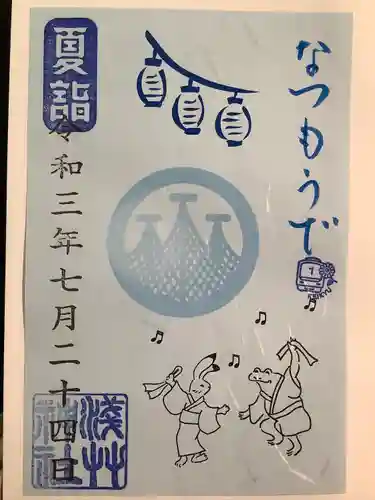 なつもうで
1
KEIKYU
夏詣
令和三年七月二十四日
浅草
神社